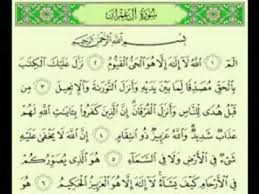 سُورَةُ آلِ عِمْرَان
بِسْمِ اللَّهِ الرَّحْمَٰنِ الرَّحِيمِ
الٓمٓ ١ اللَّهُ لَا إِلَٰهَ إِلَّا هُوَ الْحَيُّ الْقَيُّومُ ٢ نَزَّلَ عَلَيْكَ الْكِتَٰبَ
بِالْحَقِّ مُصَدِّقًا لِّمَا بَيْنَ يَدَيْهِ وَأَنزَلَ التَّوْرَىٰةَ وَالْإِنجِيلَ ٣ مِن
قَبْلُ هُدًى لِّلنَّاسِ وَأَنزَلَ الْفُرْقَانَ إِنَّ الَّذِينَ كَفَرُوا بِـَٔايَٰتِ اللَّهِ لَهُمْ
عَذَابٌ شَدِيدٌ وَاللَّهُ عَزِيزٌ ذُو انتِقَامٍ ٤ إِنَّ اللَّهَ لَا يَخْفَىٰ عَلَيْهِ
شَىْءٌ فِي الْأَرْضِ وَلَا فِي السَّمَاءِ ٥ هُوَ الَّذِي يُصَوِّرُكُمْ
فِي الْأَرْحَامِ كَيْفَ يَشَاءُ لَا إِلَٰهَ إِلَّا هُوَ الْعَزِيزُ الْحَكِيمُ ٦ هُوَ